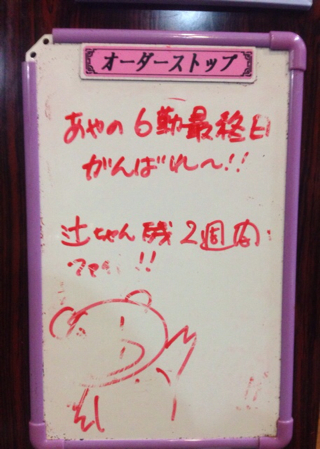 オーダーストップ
あやの6勤最終日
がんばれ〜!!
辻ちゃん残2週間
!!